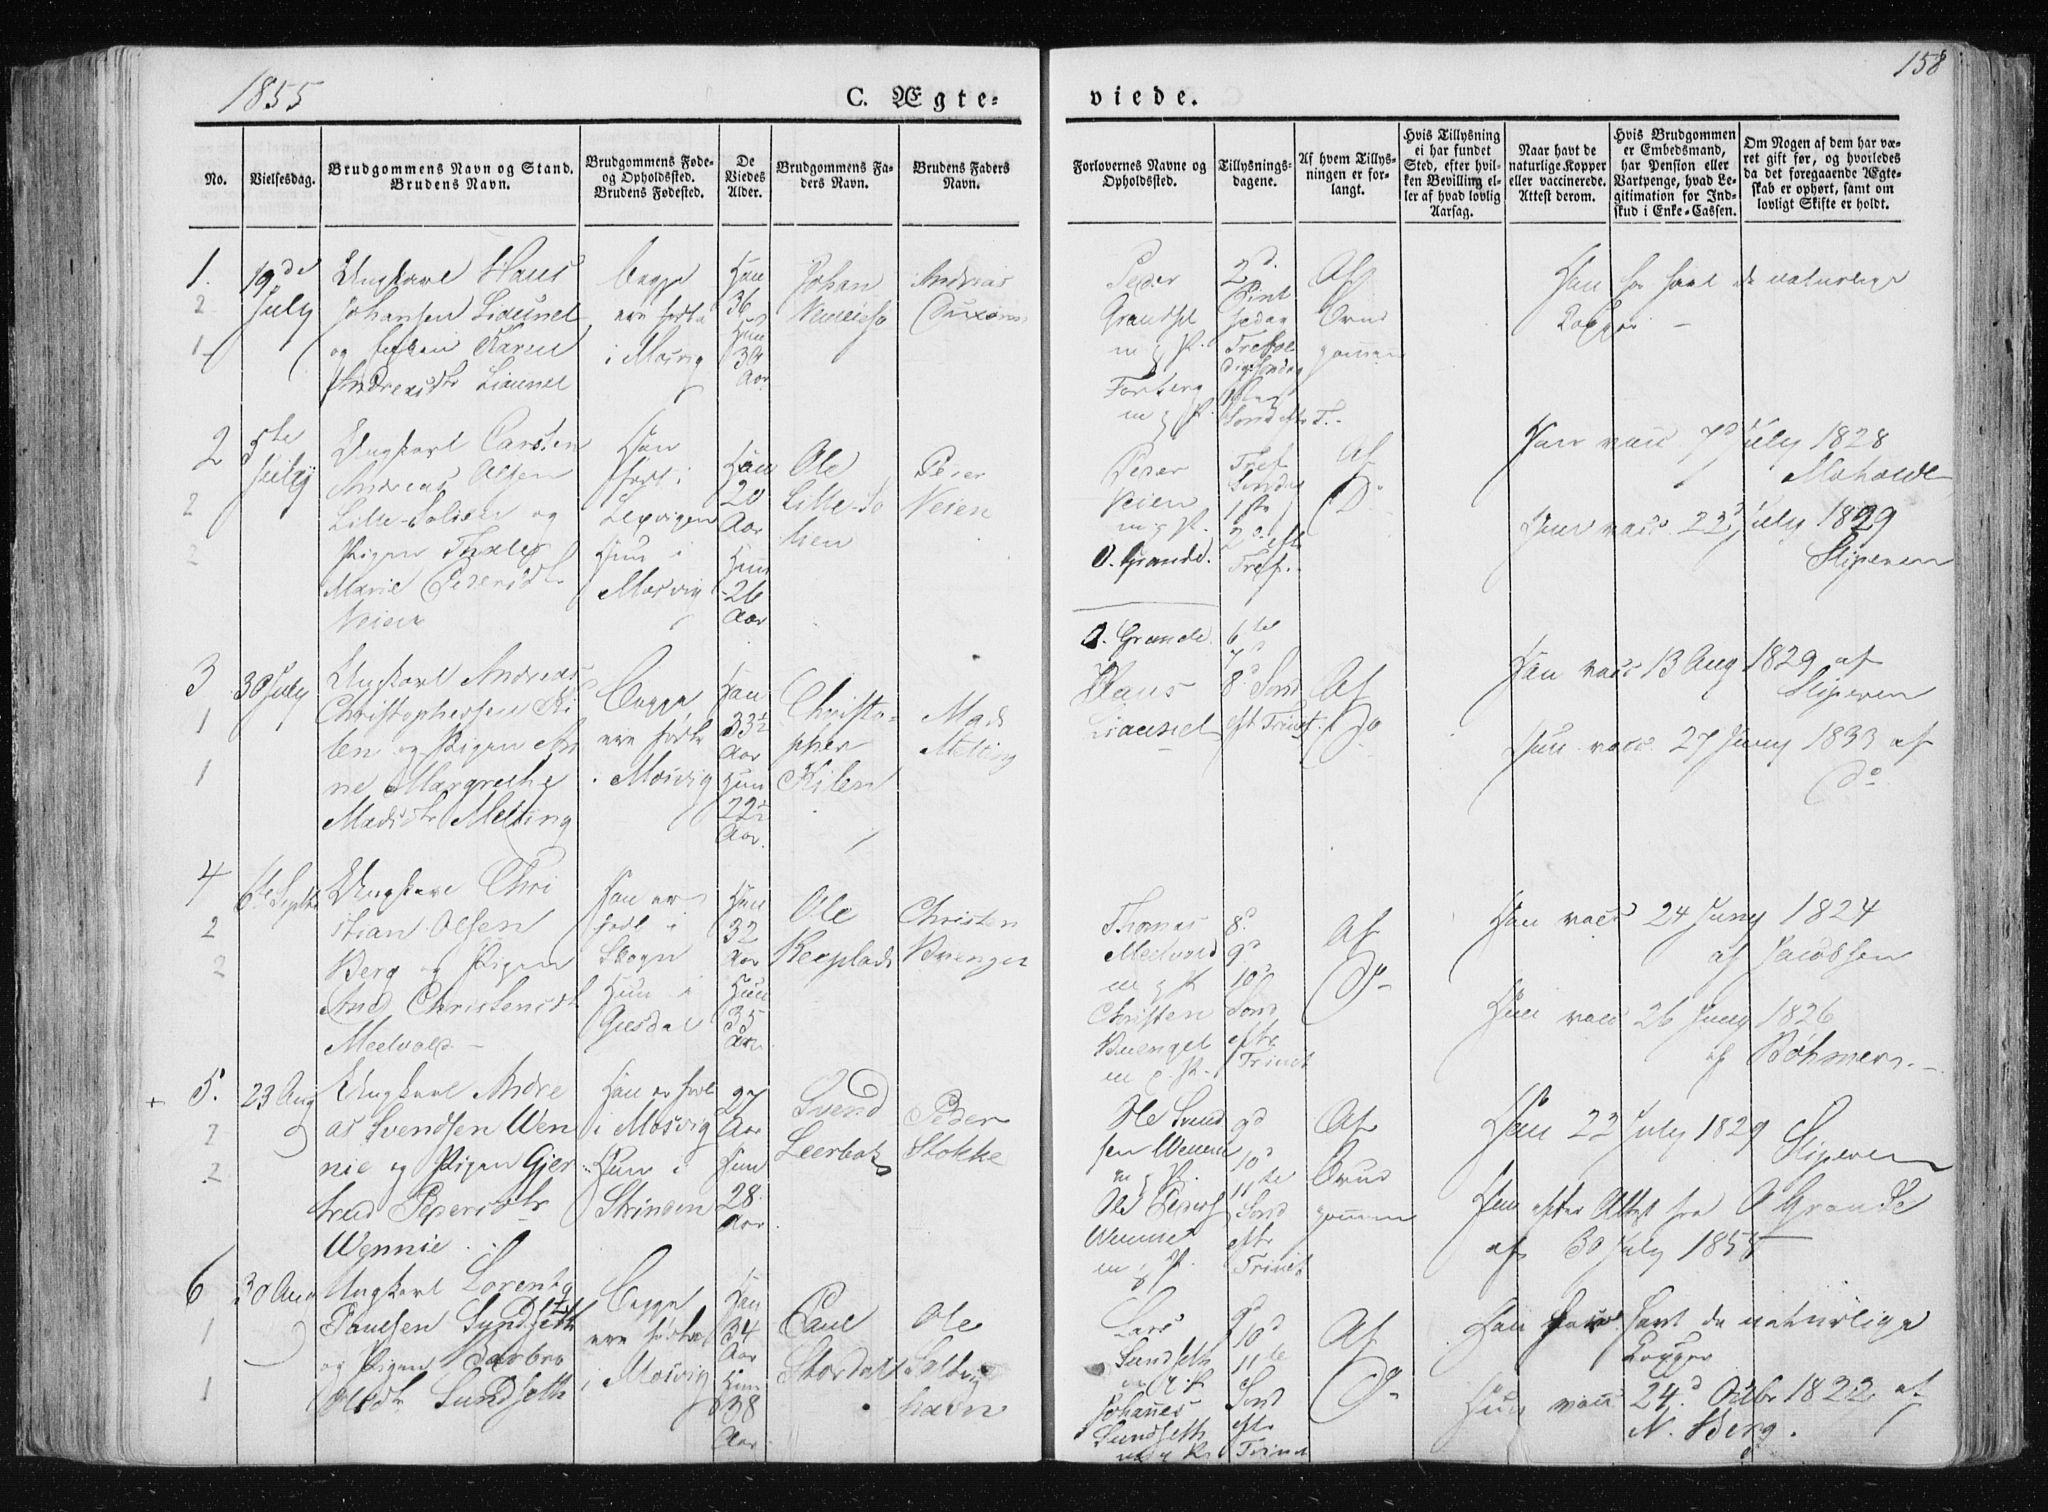 1855
C. Ægte-
viede.
158
No.
Vielsesdag.
Brudgommens Navn og Stand.
Brudens Navn.
Brudgommens Føde-
og Opholdssted.
Brudens Fødested.
De
Viedes
Alder.
Brudgommens Fa-
ders Navn.
Brudens Faders
Navn.
Forlovernes Navne og
Opholdssted.
Tillysnings-
dagene.
Af hvem Tillys-
ningen er for-
langt.
Hvis Tillysning
ei har fundet
Sted, efter hvil-
ken Bevilling el-
ler af hvad lovlig
Aarsag.
Naar havt de
naturlige Kopper
eller vaccinerede.
Attest derom.
Hvis Brudgommen
er Embedsmand,
har Pension eller
Vartpenge, hvad Le-
gitimation for Ind-
skud i Enke-Cassen.
Om Nogen af dem har væ-
ret gift før, og hvorledes
da det foregaaende Ægte-
skab er ophørt, samt om
lovligt Skifte er holdt.
1.
2
1
19de
July
Ungkarl Hans
Johansen
og Pigen Karen
Andreasdtr
Begge
ere fødte
i Mosvig
Han
36
Hun
39
Aar
Johan
Andreas
Peder
Grandsel
m g P.
Forberg
m g P.
2d.
Pint
sedag
Trefol
digsøndag
1ste
Sond eft T.
Af
Brud
gommen
Han har havt de naturlige
Kopper
2
2
2
5te
July
Ungkarl Carsten
Andreas Olsen
og
Pigen
Marie Pedersdtr
Veien
Han
født i
Lexvigen
Hun i
Mosvig
Han
20
Aar
Hun
26
Aar
Ole
Lille-So
lien
Peder
Veien
Peder
Veien
m g P.
O. Grande.
Tref
Søndag
1ste
2d eft
Tref.
Af
Do
Han vacc. 7d July 1828
Maholde
Hun vacc. 22d July 1829
Stipeven
3
1
1
30 July
Ungkarl Andreas
Christophersen Ki
len og Pigen An
ne Margrethe
Madsdtr Melting
Begge
ere fødte
i Mosvig
Han
33½
Aar
Hun
22½
Aar.
Christo-
pher
Kilen
Mads
Melting
O. Grande
Hans
Liaunel
6te
7d
8d Sond
eft Trinet.
Af
Do
Han vacc 13 Aug 1829 af
Stipeven
Hun vacc. 27 Juny 1833 af
Do
4
2
2
6te Septbr
Ungkarl Chri
stian Olsen
Berg og Pigen
Ane Christensdtr
Meelvold
Han er
født i
Skogn
Hun i
Han
32
Aar
Hun
35
Aar
Ole
Christen
Thomas
Meelvold
m g P
Christen
m g P.
8d
9d
10d
Sond
eftr
Trinet
Af
Do
Han vacc 24 Juny 1824
af Jacobsen
Hun vacc 26 Juny 1826
af Bøhmer.
+
5.
2
2
23 Aug
Ungkarl Andre
as Svendsen Wen
nie og Pigen Gjer
trud Pedersdtr
Wennie
Han er født
i Mosvig
Hun i
Strinden
27
Aar
Hun
28
Aar
Svend
Leerbak
Peder
Stokke
Ole Svend
sen Wennie
m g P.
Ole Peders
m g P.
9d
10d
11te
Sond
eftr
Trinet
Af
Brud
gommen
Han 22 July 1829 Stipeven
Hun efter Attest fra O Grande
af 30 July 1855
6
1
1
30 Aug
Ungkarl Lorents
Paulsen Sundseth
og Pigen Barbro
Olsdtr Sundseth
Begge
ere fødte
i Mosvig
Han
34
Aar
Hun
38
Aar
Paul
Stordal
Ole
Selvig
havn
Lars
Sundseth
m g P
Johannes
Sundseth
9d
10d
11te
Sond
eftr
Trinet
Af
Do
Han har havt de naturlige
Kopper
Hun vacc 24d Octbr 1822 af
N. Berg.